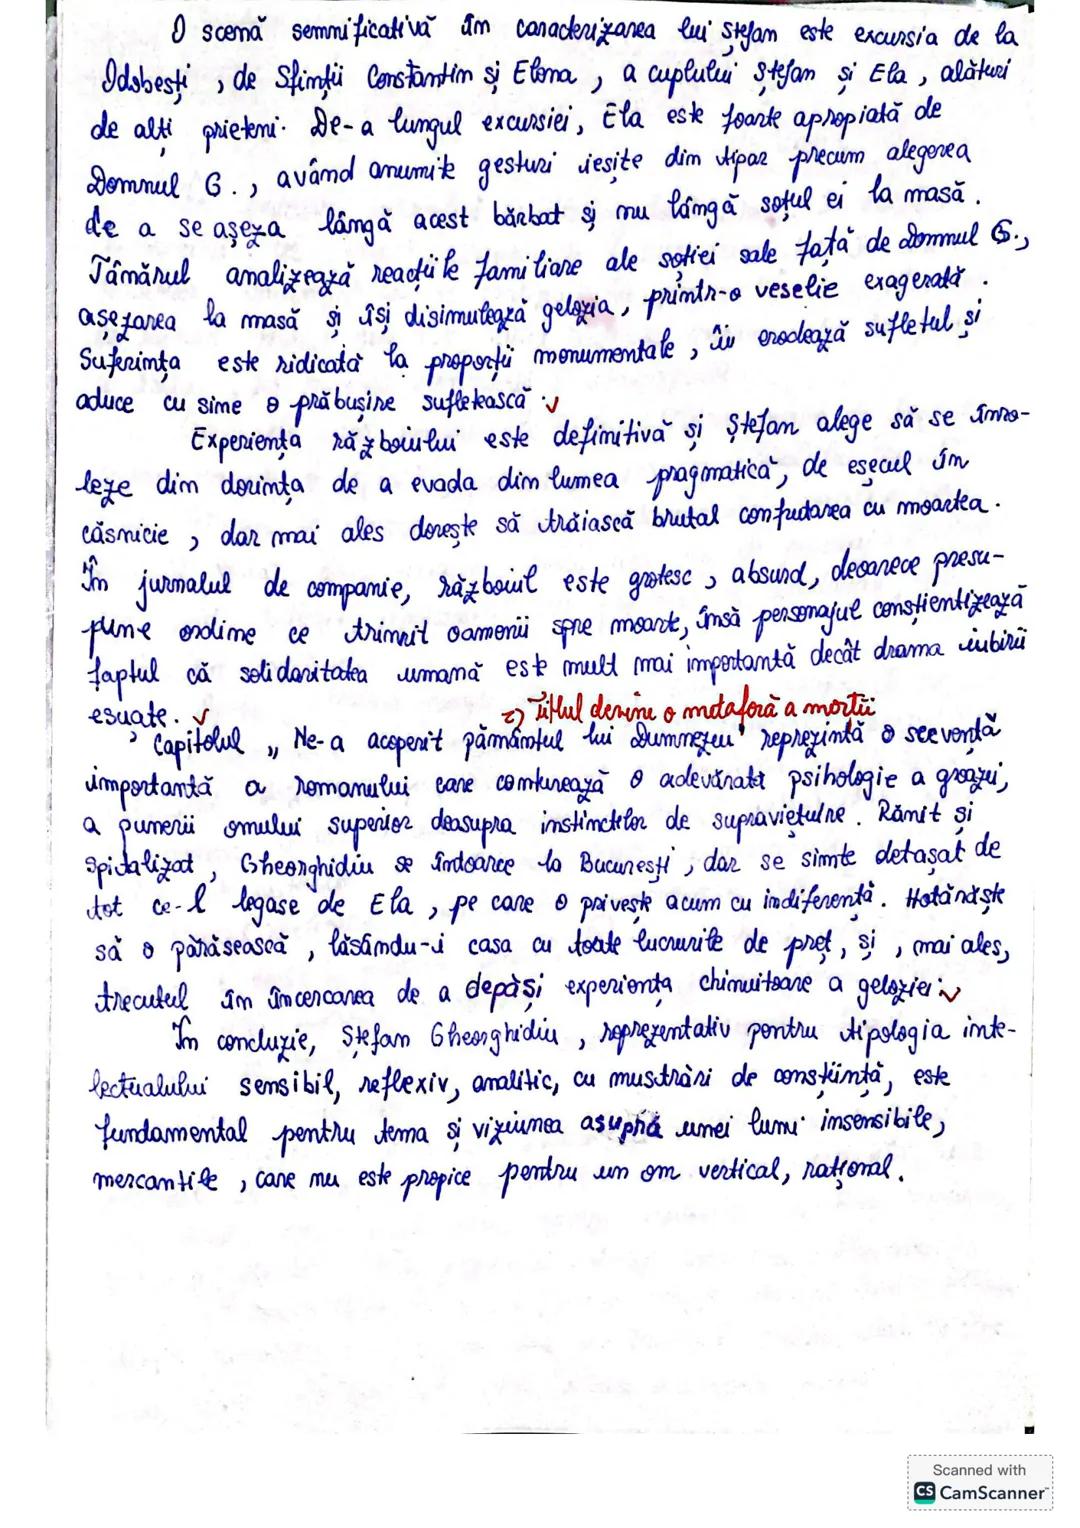 O scenă semnificativă în caracterizarea lui Ștefan este excursia de la
Odobești, de Sfinții Constantin și Elena, a cuplului Ștefan și Ela, alături
de alți prieteni. De-a lungul excursiei, Ela este foarte apropiată de
Domnul G., având anumite gesturi ieșite din tipar precum alegerea
de a se așeza lângă acest bărbat și nu lângă soțul ei la masă.
Tânărul analizează reacțiile familiare ale soției sale față de domnul G.,
așezarea la masă și își disimulează gelozia, printr-o veselie exagerată.
Suferința este ridicată la proporții monumentale, îi erodează sufletul și
aduce cu sine o prăbușire sufletească.
Experiența războiului este definitivă și Ștefan alege să se înro-
leze din dorința de a evada din lumea pragmatică, de eșecul în
căsnicie, dar mai ales dorește să trăiască brutal confudarea cu moartea.
În jurnalul de companie, războiul este grotesc, absurd, deoarece presu-
pune ordine ce trimit oamenii spre moarte, însă personajul conștientizează
faptul că solidaritatea umană este mult mai importantă decât drama iubirii
eșuate.
Titlul devine o metaforă a morții
Capitolul „Ne-a acoperit pământul lui Dumnezeu" reprezintă o secvență
importantă a romanului care conturează o adevărată psihologie a groazei,
a punerii omului superior deasupra instinctelor de supraviețuire. Rănit și
spitalizat, Gheorghidiu se întoarce la București, dar se simte detașat de
tot ce-l legase de Ela, pe care o privește acum cu indiferență. Hotărăște
să o părăsească, lăsându-i casa cu toate lucrurile de preț, și, mai ales,
trecutul în încercarea de a depăși experiența chinuitoare a geloziei.
În concluzie, Ștefan Gheorghidiu, reprezentativ pentru tipologia inte-
lectualului sensibil, reflexiv, analitic, cu mustrări de conștiință, este
fundamental pentru tema și viziunea asupra unei lumi insensibile,
mercantile, care nu este propice pentru un om vertical, rațional.
Scanned with
CS CamScanner